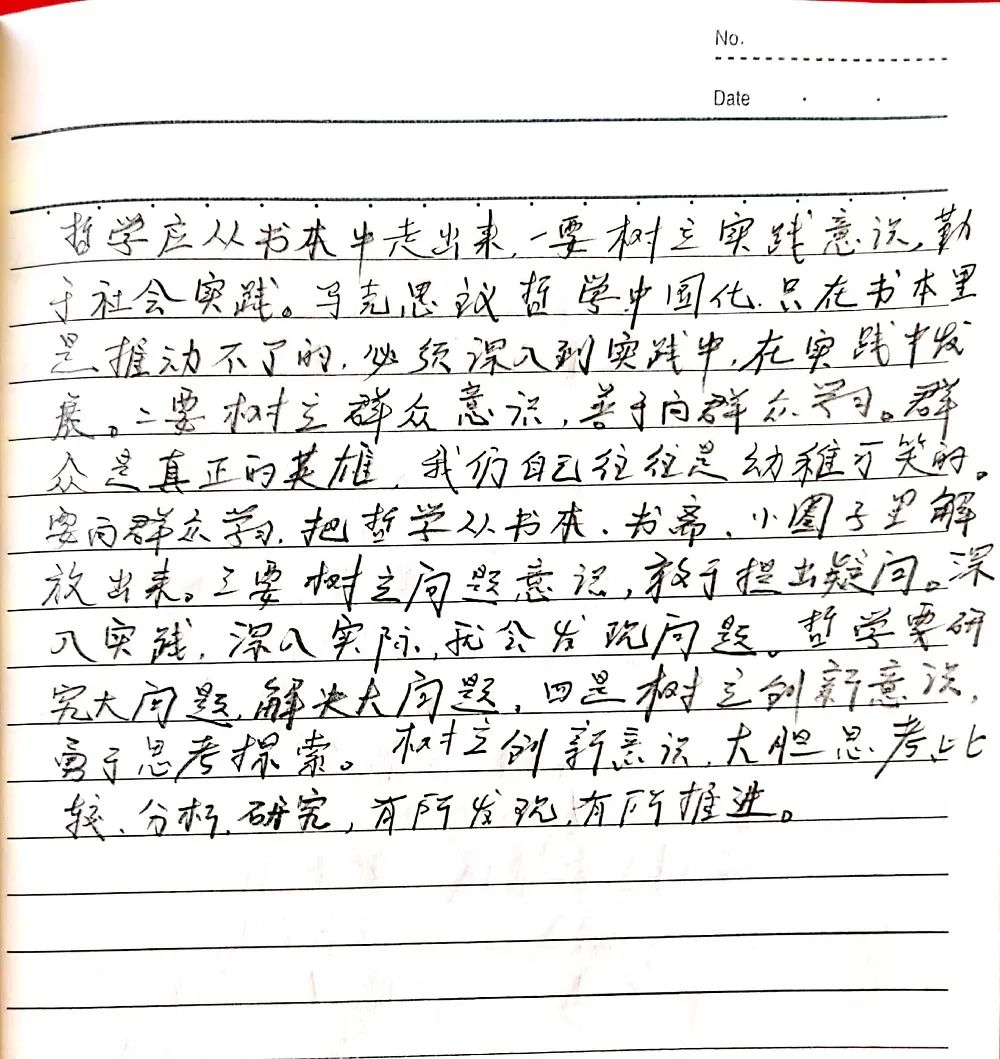 No.
Date
哲学应从书本中走出来,一要树立实践意识,勤
于社会实践。马克思主义哲学中国化,只在书本里
是推动不了的,必须深入到实践中,在实践中发
展。二要树立群众意识,善于向群众学习。群
众是真正的英雄,我们自己往往是幼稚可笑的。
要向群众学习,把哲学从书本、书斋、小圈子里解
放出来。三要树立问题意识,敢于提出疑问。深
入实践,深入实际,就会发现问题。哲学要研
究大问题,解决大问题。四是树立创新意识,
勇于思考探索。树立创新意识,大胆思考、比
较、分析、研究,有所发现,有所推进。